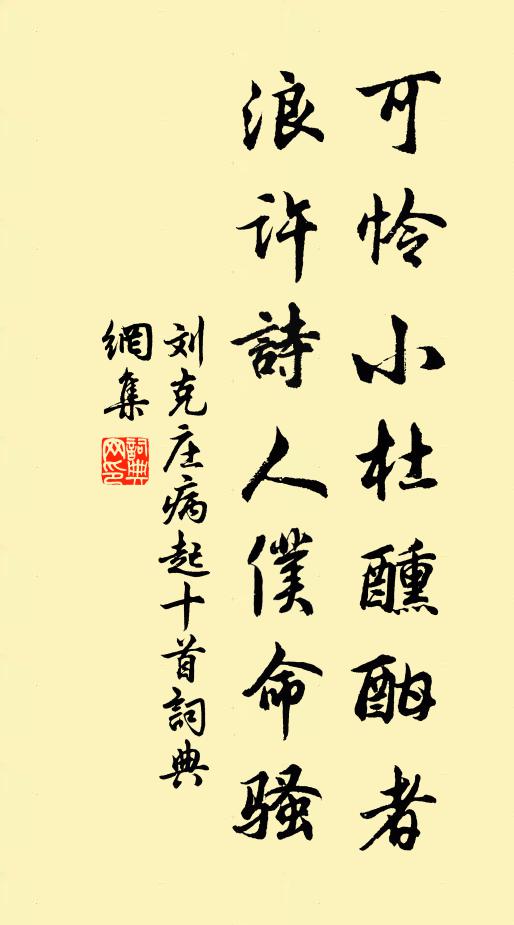 可怜小杜醺酣者
浪許詩人僕命骚
刘克庄病起十首詞典
網集
詞典
网印